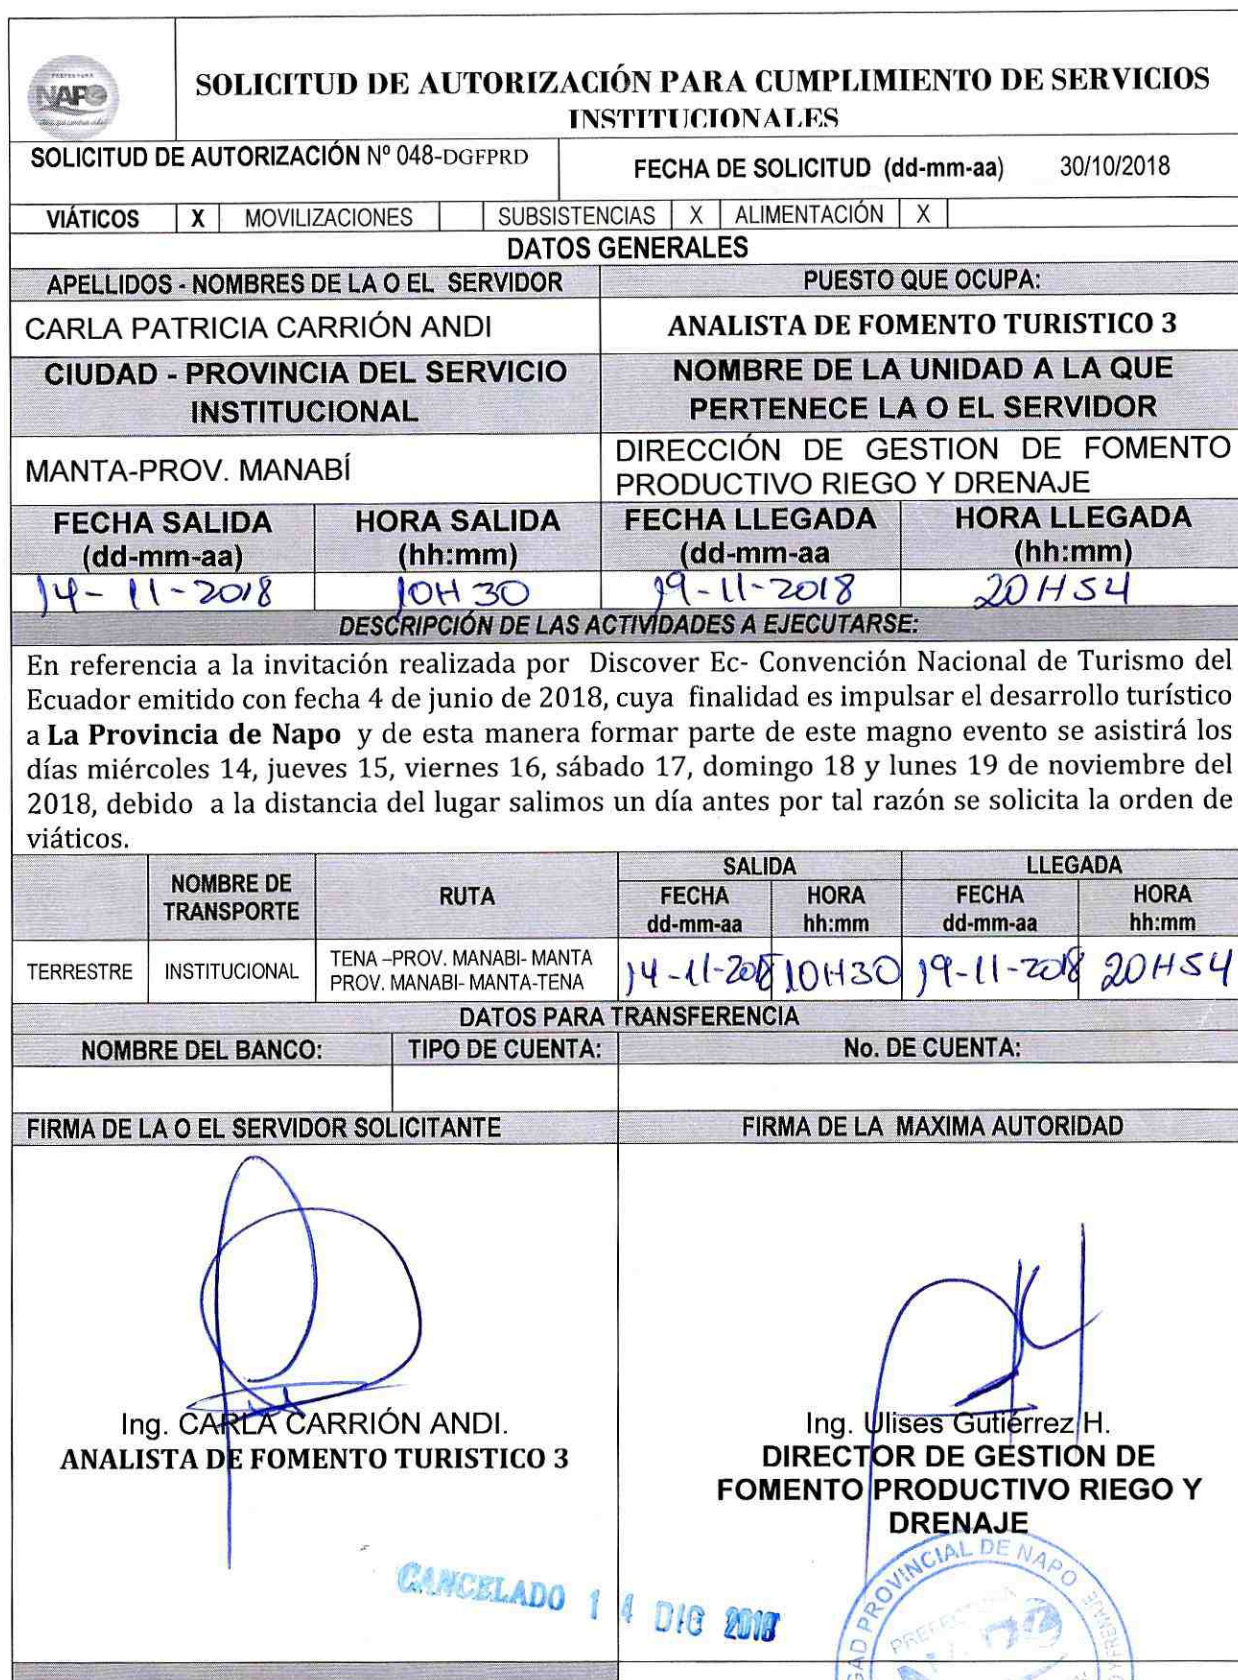 PREFECTURA
NAPO
SOLICITUD DE AUTORIZACIÓN PARA CUMPLIMIENTO DE SERVICIOS
INSTITUCIONALES
SOLICITUD DE AUTORIZACIÓN Nº 048-DGFPRD
FECHA DE SOLICITUD (dd-mm-aa) 30/10/2018
VIÁTICOS X MOVILIZACIONES SUBSISTENCIAS X ALIMENTACIÓN X
DATOS GENERALES
APELLIDOS - NOMBRES DE LA O EL SERVIDOR PUESTO QUE OCUPA:
CARLA PATRICIA CARRIÓN ANDI ANALISTA DE FOMENTO TURISTICO 3
CIUDAD - PROVINCIA DEL SERVICIO
INSTITUCIONAL
NOMBRE DE LA UNIDAD A LA QUE
PERTENECE LA O EL SERVIDOR
MANTA-PROV. MANABÍ
DIRECCIÓN DE GESTION DE FOMENTO
PRODUCTIVO RIEGO Y DRENAJE
FECHA SALIDA
(dd-mm-aa)
HORA SALIDA
(hh:mm)
FECHA LLEGADA
(dd-mm-aa
HORA LLEGADA
(hh:mm)
14-11-2018 10H30 19-11-2018 20H54
DESCRIPCIÓN DE LAS ACTIVIDADES A EJECUTARSE:
En referencia a la invitación realizada por Discover Ec- Convención Nacional de Turismo del
Ecuador emitido con fecha 4 de junio de 2018, cuya finalidad es impulsar el desarrollo turístico
a La Provincia de Napo y de esta manera formar parte de este magno evento se asistirá los
días miércoles 14, jueves 15, viernes 16, sábado 17, domingo 18 y lunes 19 de noviembre del
2018, debido a la distancia del lugar salimos un día antes por tal razón se solicita la orden de
viáticos.
NOMBRE DE
TRANSPORTE
RUTA
SALIDA LLEGADA
FECHA
dd-mm-aa
HORA
hh:mm
FECHA
dd-mm-aa
HORA
hh:mm
TERRESTRE INSTITUCIONAL
TENA –PROV. MANABI- MANTA
PROV. MANABI- MANTA-TENA
14-11-2018 10H30 19-11-2018 20H54
DATOS PARA TRANSFERENCIA
NOMBRE DEL BANCO: TIPO DE CUENTA: No. DE CUENTA:
FIRMA DE LA O EL SERVIDOR SOLICITANTE FIRMA DE LA MAXIMA AUTORIDAD
Ing. CARLA CARRIÓN ANDI.
ANALISTA DE FOMENTO TURISTICO 3
Ing. Ulises Gutiérrez H.
DIRECTOR DE GESTION DE
FOMENTO PRODUCTIVO RIEGO Y
DRENAJE
CANCELADO 14 DIC 2018
GAD PROVINCIAL DE NAPO